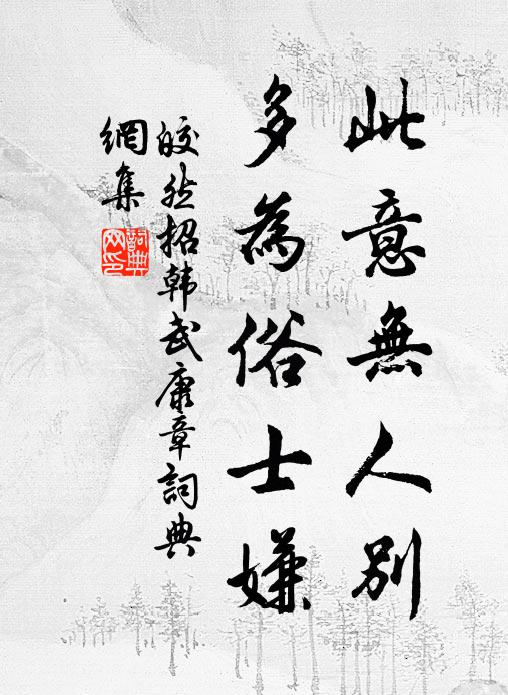 此意無人別
多為俗士嫌
皎然招韩武康章詞典
網集
詞典網印